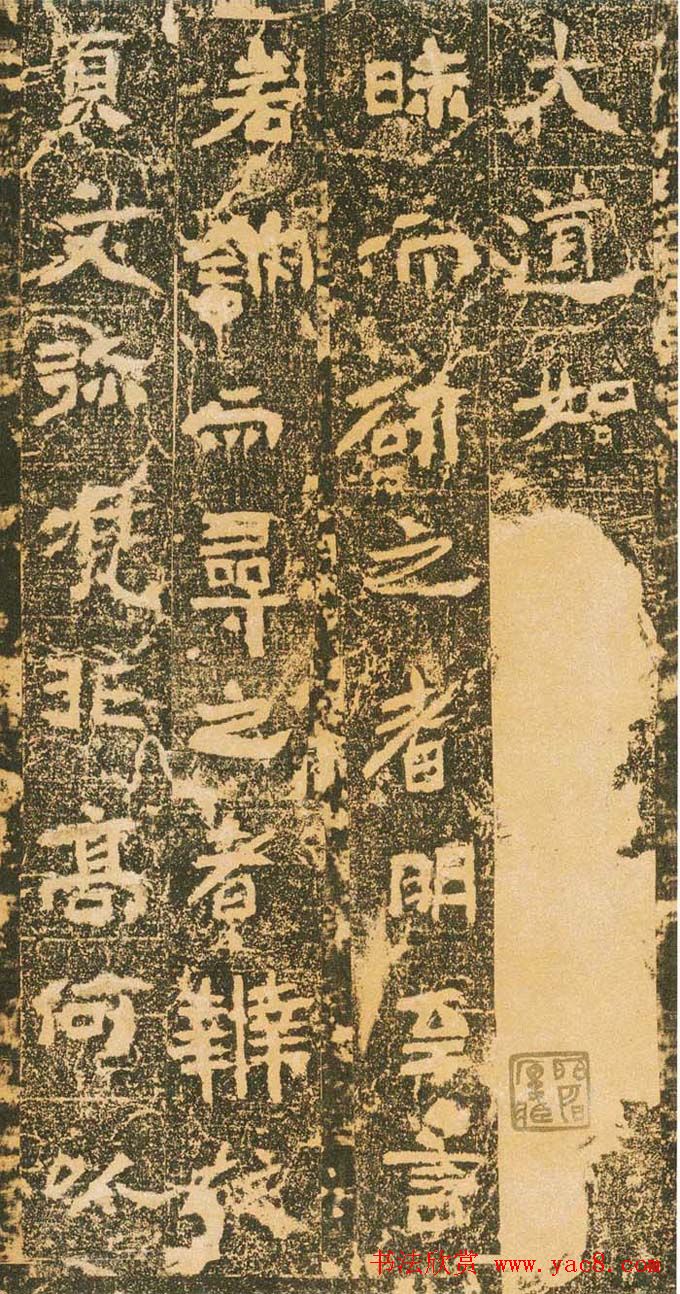 大道如
昧而研之者明至言
若訥而尋之者辯故
文弥 非高何
书法欣赏 www.yac8.com